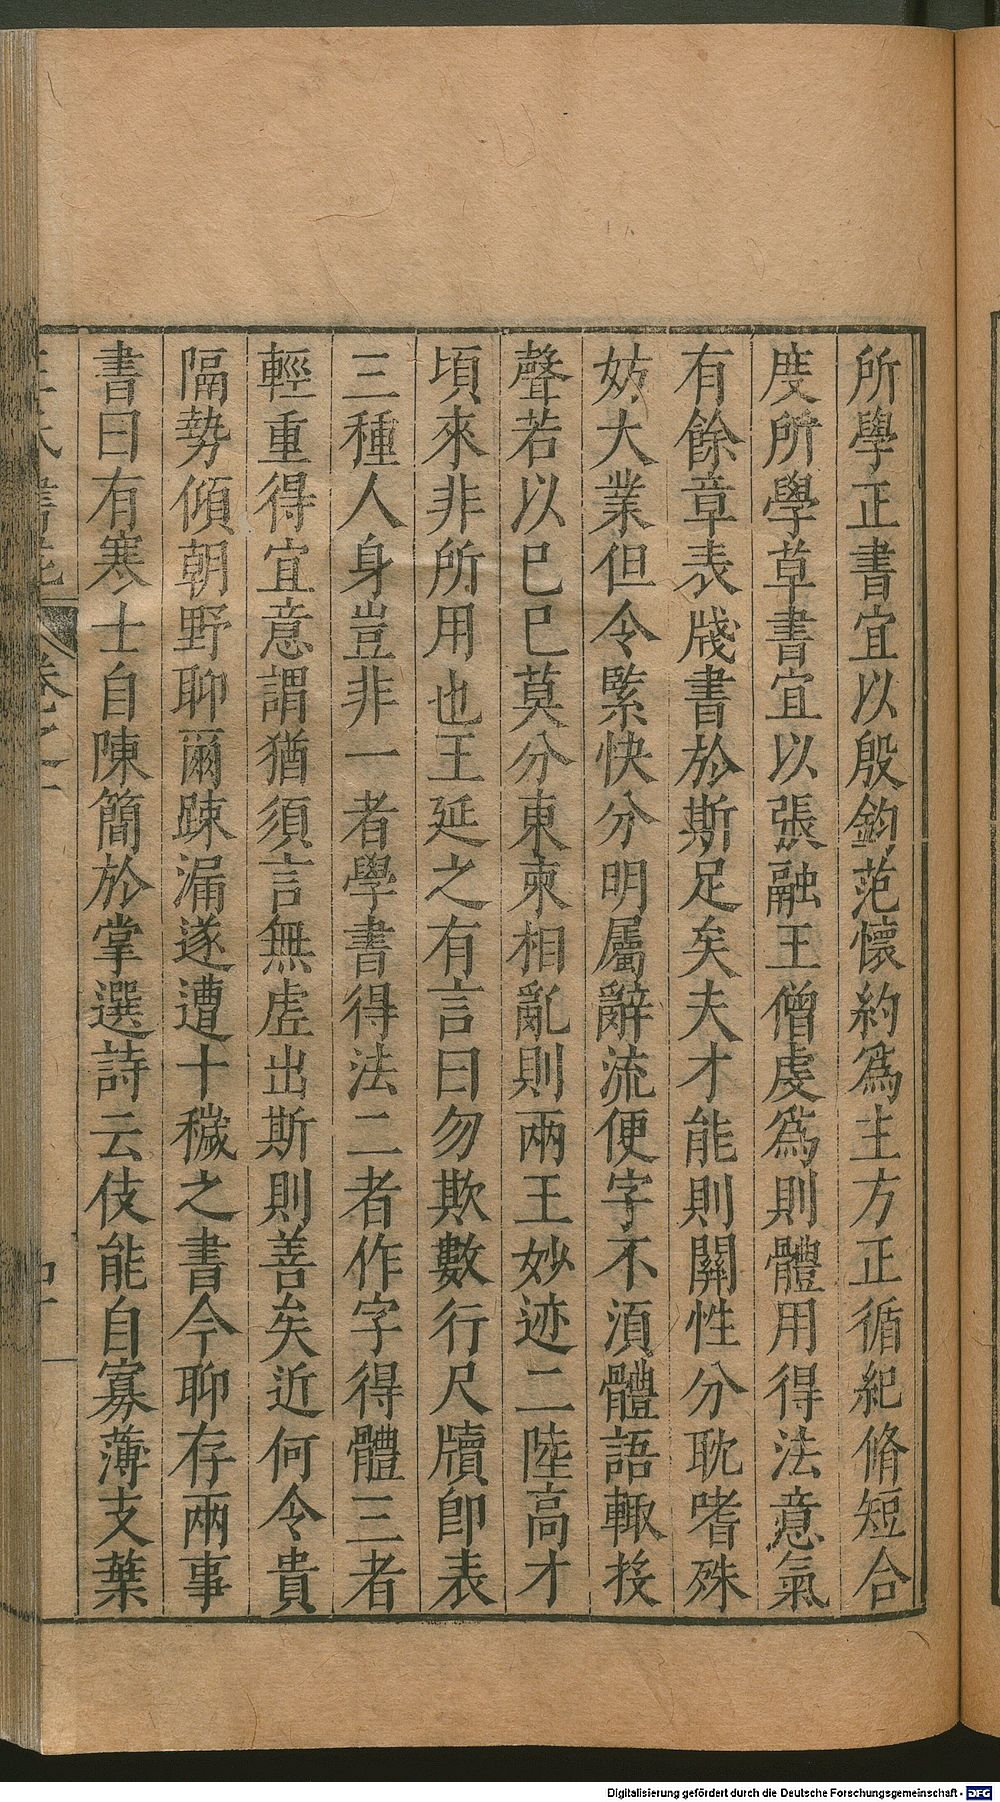 所學正書宜以殷鈞范懷約爲主方正循紀脩短合
度所學草書宜以張融王僧虔爲則體用得法意氣
有餘章表牋書於斯足矣夫才能則關性分耽嗜殊
妨大業但令緊快分明屬辭流便字不須體語輙投
聲若以巳巳莫分東柬相亂則兩王妙迹二陸高才
頃來非所用也王延之有言曰勿欺數行尺牘卽表
三種人身豈非一者學書得法二者作字得體三者
輕重得宜意謂猶須言無虗出斯則善矣近何令貴
隔勢傾朝野聊爾踈漏遂遭十穢之書今聊存兩事
書曰有寒士自陳簡於掌選詩云伎能自寡薄支葉
卷之二
Digitalisierung gefördert durch die Deutsche Forschungsgemeinschaft - DFG